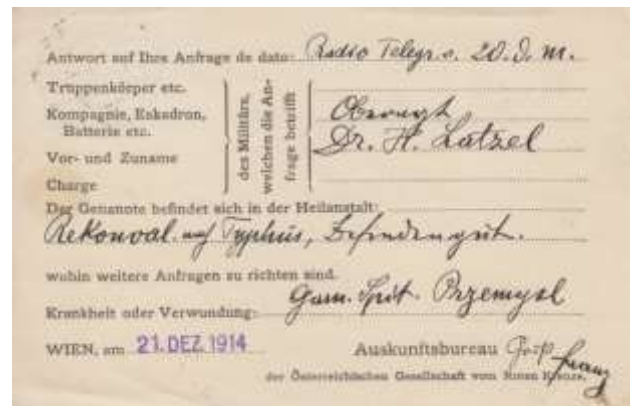 Antwort auf Ihre Anfrage de dato: Radio Telegr. v. 20. d. M.
Truppenkörper etc.
Kompagnie, Eskadron,
Batterie etc.
Vor- und Zuname
Charge
des Militärs,
welchen die An-
frage betrifft
Oberarzt
Dr. H. Latzel
Der Genannte befindet sich in der Heilanstalt:
Rekonval. nach Typhus, Befinden gut.
wohin weitere Anfragen zu richten sind.
Krankheit oder Verwundung: Garn. Spit. Przemysl
WIEN, am 21. DEZ. 1914
Auskunftsbureau
der Österreichischen Gesellschaft vom Roten Kreuze.